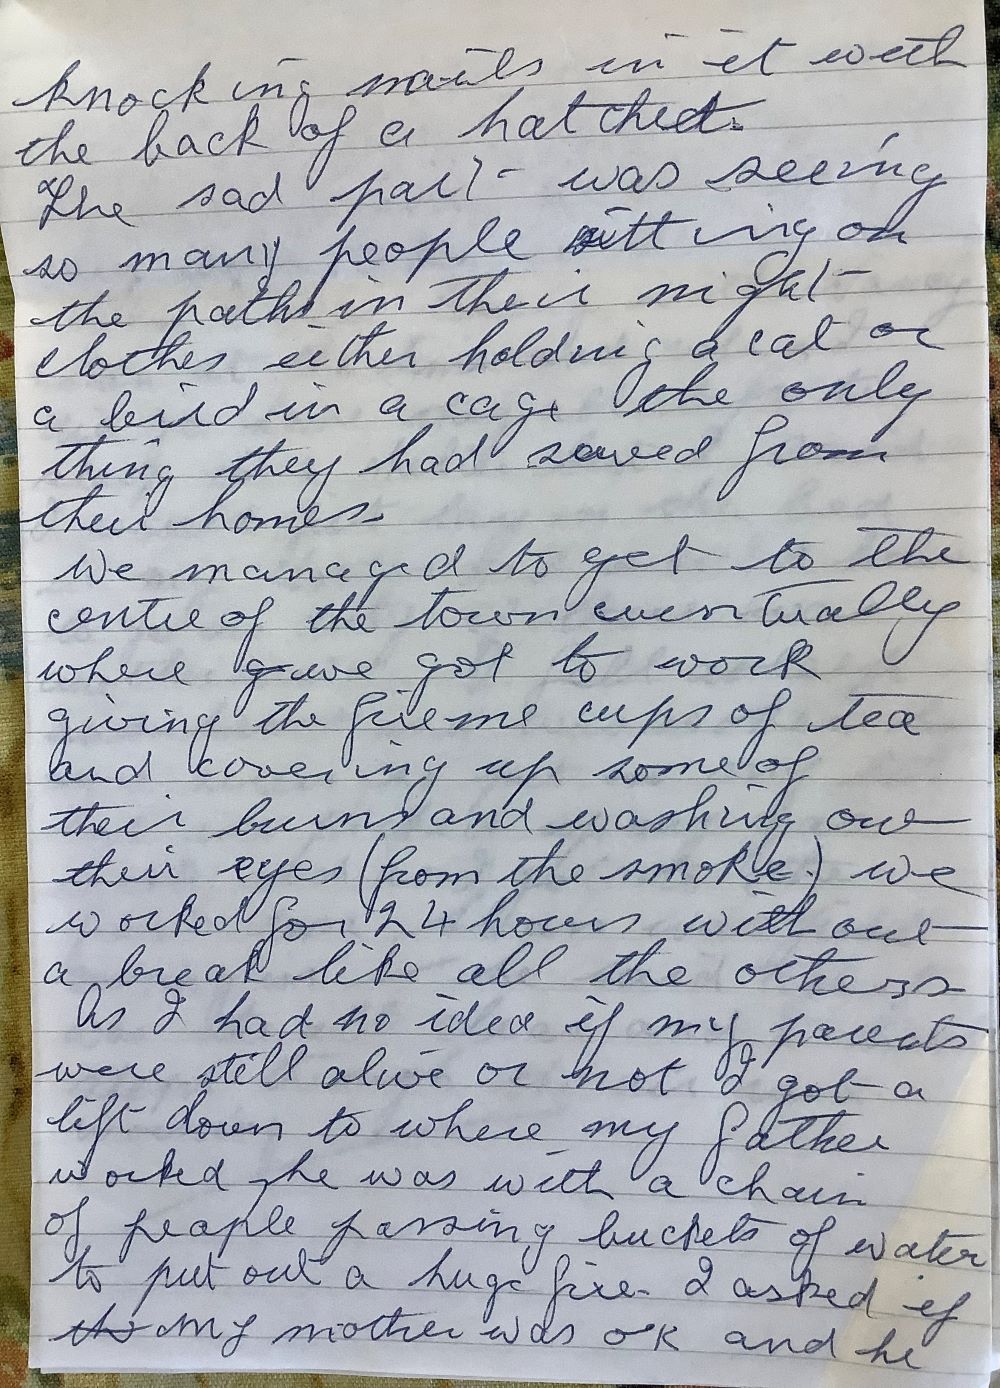 knocking nails in it with
the back of a hatchet.
The sad part was seeing
so many people sitting on
the paths in their night
clothes either holding a cat or
a bird in a cage the only
thing they had saved from
their homes.
We managed to get to the
centre of the town eventually
where we got to work
giving the fireme cups of tea
and covering up some of
their burns and washing out
their eyes (from the smoke.) we
worked for 24 hours without
a break like all the others
As I had no idea if my parents
were still alive or not I got a
lift down to where my father
worked, he was with a chain
of people passing buckets of water
to put out a huge fire. I asked if
my mother was ok and he